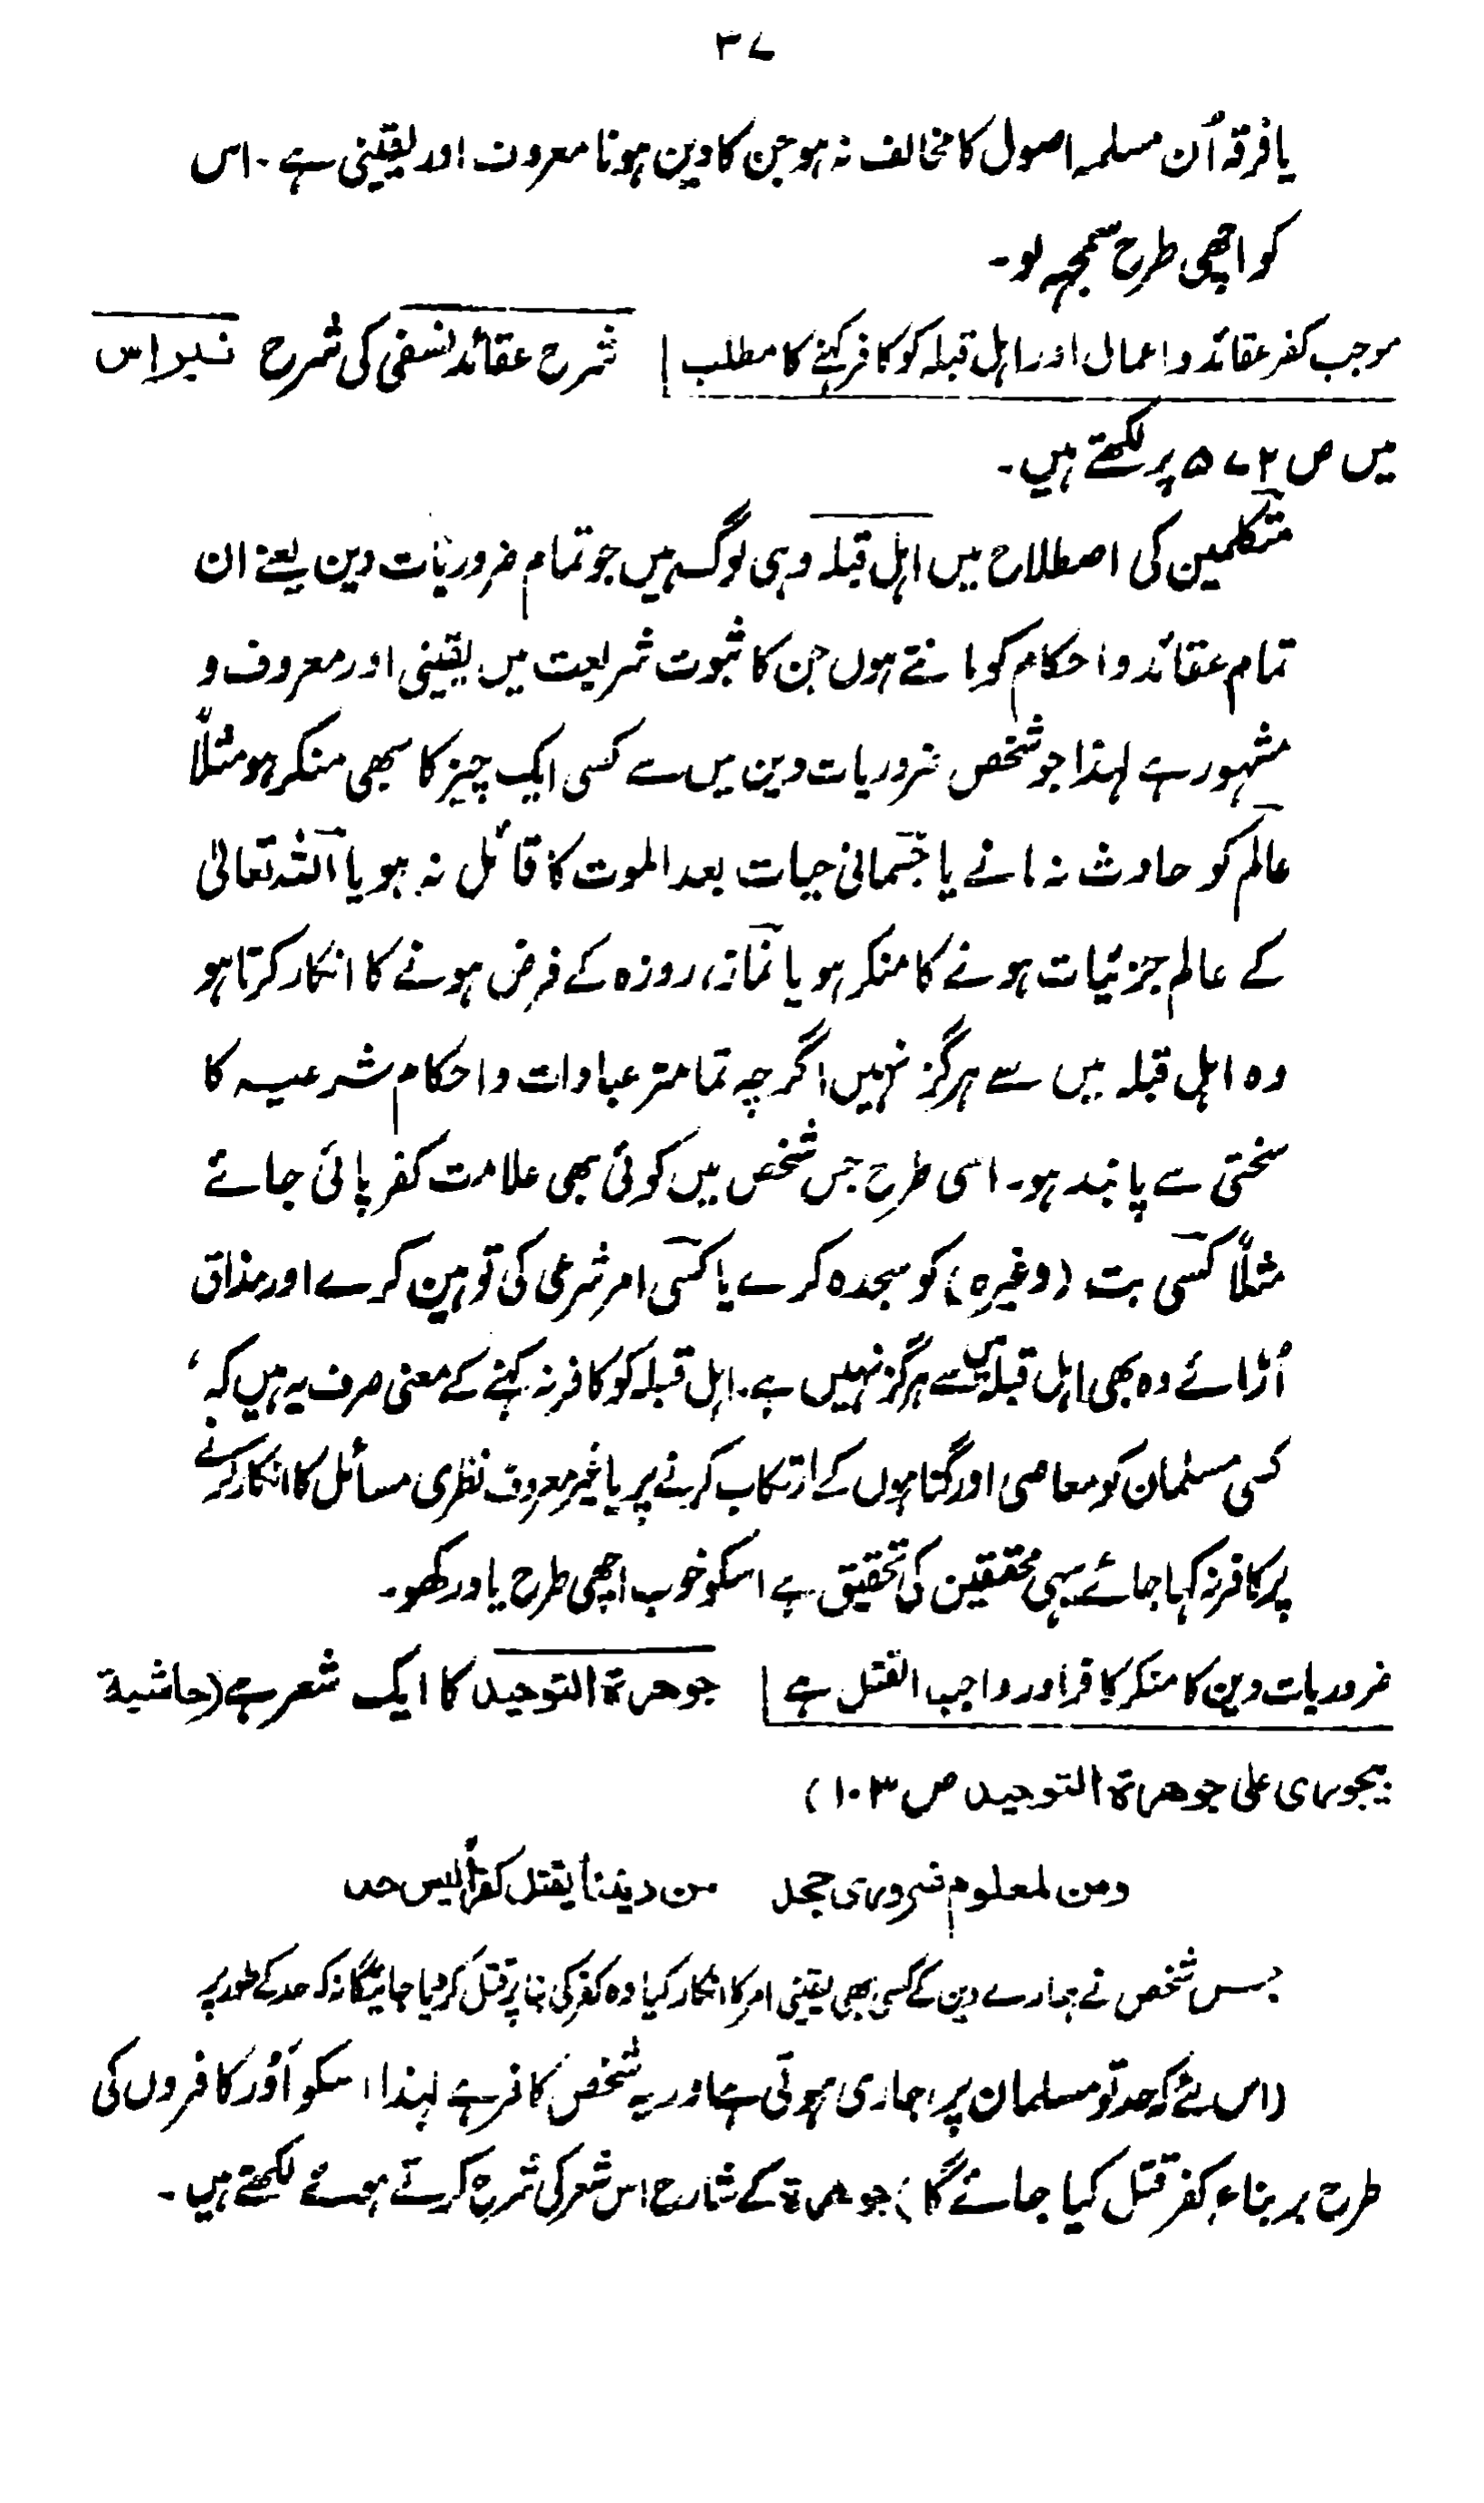 ۳۷
یا فرقہ اُن مسلمہ اصول کا مخالف نہ ہو جن کا دین ہونا معروف اور یقینی ہے۔ اس
کو اچھی طرح سمجھ لو۔
موجب کفر عقائد و اعمال اور اہل قبلہ کو کافر کہنے کا مطلب | شرح عقائد نسفی کی شرح نبراس
میں ص ۵۷۲ پر لکھتے ہیں۔
متکلمین کی اصطلاح میں اہل قبلہ وہی لوگ ہیں جو تمام ضروریات دین یعنے ان
تمام عقائد و احکام کو مانتے ہوں جن کا ثبوت شریعت میں یقینی اور معروف و
مشہور ہے لہذا جو شخص ضروریات دین میں سے کسی ایک چیز کا بھی منکر ہو مثلاً
عالم کو حادث نہ مانے یا جسمانی حیات بعد الموت کا قائل نہ ہو یا اللہ تعالیٰ
کے عالم جزئیات ہونے کا منکر ہو یا نماز، روزہ کے فرض ہونے کا انکار کرتا ہو
وہ اہل قبلہ میں سے ہرگز نہیں اگرچہ تمامتر عبادات و احکام شرعیہ کا
سختی سے پابند ہو۔ اسی طرح جس شخص میں کوئی بھی علامت کفر پائی جائے
مثلاً کسی بت (وغیرہ) کو سجدہ کرے یا کسی امر شرعی کی توہین کرے اور مذاق
اُڑائے وہ بھی اہل قبلہ میں سے ہرگز نہیں ہے۔ اہل قبلہ کو کافر نہ کہنے کے معنی صرف یہ ہیں کہ،
کسی مسلمان کو معاصی اور گناہوں کے ارتکاب کرنے پر یا غیر معروف نظری مسائل کا انکار کرنے
پر کافر نہ کہا جائے یہی محققین کی تحقیق ہے اسکو خوب اچھی طرح یاد رکھو۔
ضروریات دین کا منکر کافر اور واجب القتل ہے | جوهرة التوحيد کا ایک شعر ہے (حاشية
بیجوری علی جوهرة التوحيد ص ۱۰۳)
ومن لمعلوم ضروری جحد من دیننا یقتل کفراً لیس حد
جس شخص نے ہمارے دین کے کسی بھی یقینی امر کا انکار کیا وہ کفر کی بنا پر قتل کر دیا جائیگا نہ کہ حد کے طور پر
(اس لئے کہ حد تو مسلمان پر جاری ہوتی ہے اور یہ شخص کافر ہے لہذا اسکو اَور کافروں کی
طرح بر بناء کفر قتل کیا جائے گا) جوهرة کے شارح اس شعر کی شرح کرتے ہوئے لکھتے ہیں۔